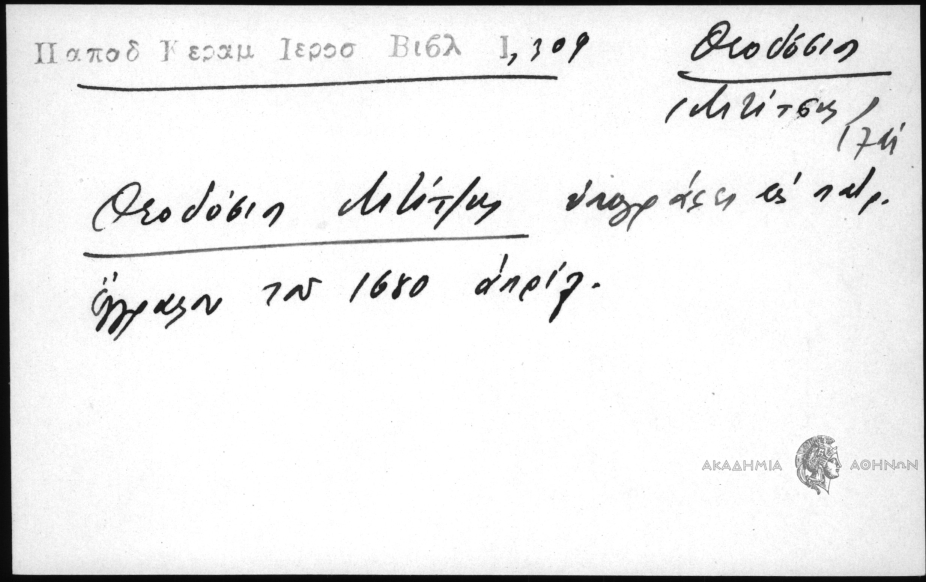 Παπαδ Κεραμ Ιεροσ Βιβλ Ι, 309
Θεοδόσιος
17 αἰ
Θεοδόσιος ὑπογράφει εἰς πατρ.
ἔγγραφον τοῦ 1680 ἀπρίλ.
ΑΚΑΔΗΜΙΑ ΑΘΗΝΩΝ